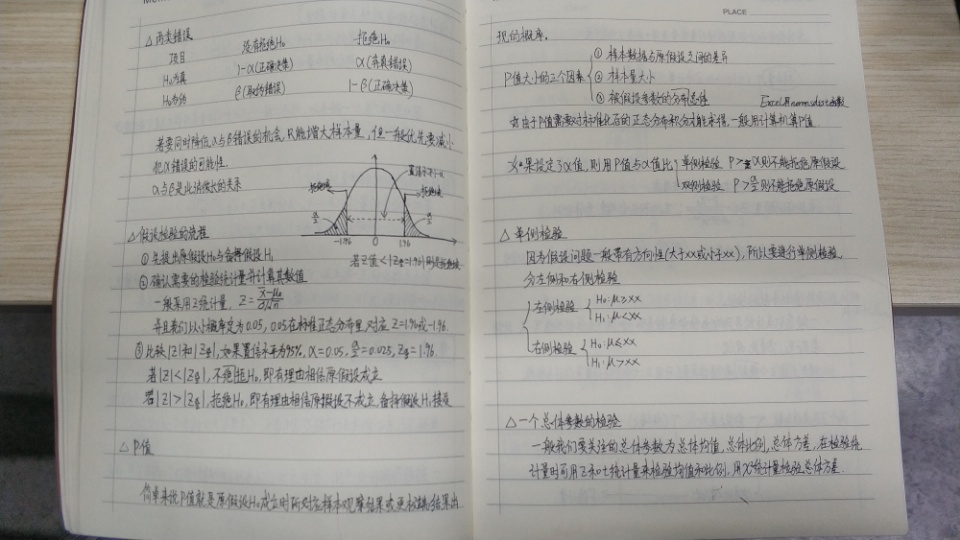 △ 两类错误
项目 没有拒绝H₀ 拒绝H₀
H₀为真 1-α(正确决策) α(弃真错误)
H₀为伪 β(取伪错误) 1-β(正确决策)
若要同时降低α与β错误的机会,只能增大样本量,但一般优先要减小
犯α错误的可能性.
α与β是此消彼长的关系
置信水平1-α
拒绝域 拒绝域
α/2 α/2
-1.96 0 1.96
△ 假设检验的流程
① 先提出原假设H₀与备择假设H₁
若Z值<|Zα/2=1.96|
② 确认需要的检验统计量并计算其数值
一般采用Z统计量. Z=(x̄-μ₀)/(σ/√n)
并且我们以小概率定为0.05, 0.05在标准正态分布里,对应Z=1.96或-1.96.
③ 比较|Z|和|Zα/2|,如果置信水平为95%, α=0.05, α/2=0.025, Zα/2=1.96
若|Z|<|Zα/2|,不能拒H₀,即有理由相信原假设成立
若|Z|>|Zα/2|,拒绝H₀,即有理由相信原假设不成立,备择假设H₁接受
△ P值
简单来说P值就是原假设H₀成立时所对应样本观察结果或更极端结果出
PLACE
现的概率.
P值大小的三个因素 ① 样本数据与原假设之间的差异
② 样本量大小
③ 被假设参数的分布总体
Excel用normsdist函数
由于P值需要对标准化后的正态分布积分才能求得,一般用计算机算P值
如果设定了α值,则用P值与α值比 单侧检验 P>α则不能拒绝原假设
双侧检验 P>α/2则不能拒绝原假设
△ 单侧检验
因为假设问题一般带有方向性(大于xx或小于xx),所以要进行单侧检验.
分左侧和右侧检验
左侧检验 H₀:μ≥xx
H₁:μ<xx
右侧检验 H₀:μ≤xx
H₁:μ>xx
△ 一个总体参数的检验
一般我们要关注的总体参数为总体均值,总体比例,总体方差,在检验统
计量时可用Z和t统计量来检验均值和比例,用χ²统计量检验总体方差.